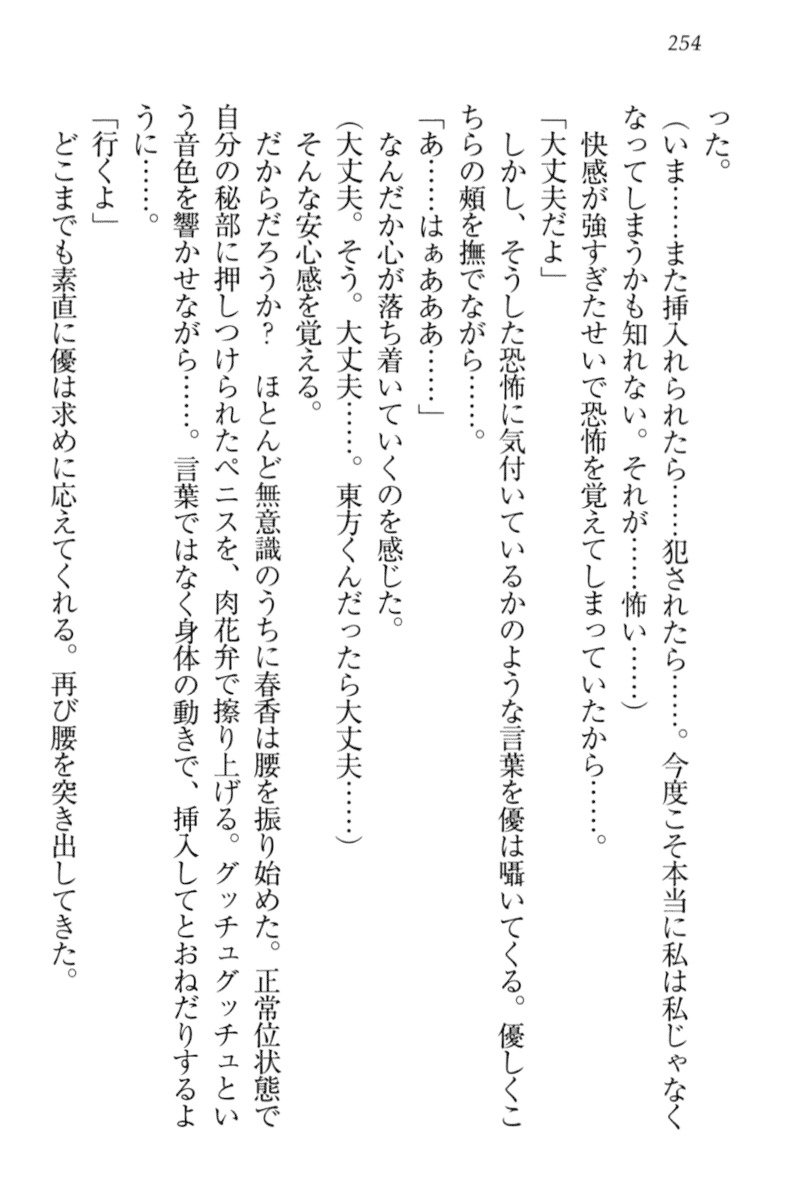 254
った。
（いま……また挿入れられたら……犯されたら……。今度こそ本当に私は私じゃなく
なってしまうかも知れない。それが……怖い……）
快感が強すぎたせいで恐怖を覚えてしまっていたから……。
「大丈夫だよ」
しかし、そうした恐怖に気付いているかのような言葉を優は囁いてくる。優しくこ
ちらの頰を撫でながら……。
「あ……はぁあああ……」
なんだか心が落ち着いていくのを感じた。
（大丈夫。そう。大丈夫……。東方くんだったら大丈夫……）
そんな安心感を覚える。
だからだろうか？　ほとんど無意識のうちに春香は腰を振り始めた。正常位状態で
自分の秘部に押しつけられたペニスを、肉花弁で擦り上げる。グッチュグッチュとい
う音色を響かせながら……。言葉ではなく身体の動きで、挿入してとおねだりするよ
うに……。
「行くよ」
どこまでも素直に優は求めに応えてくれる。再び腰を突き出してきた。